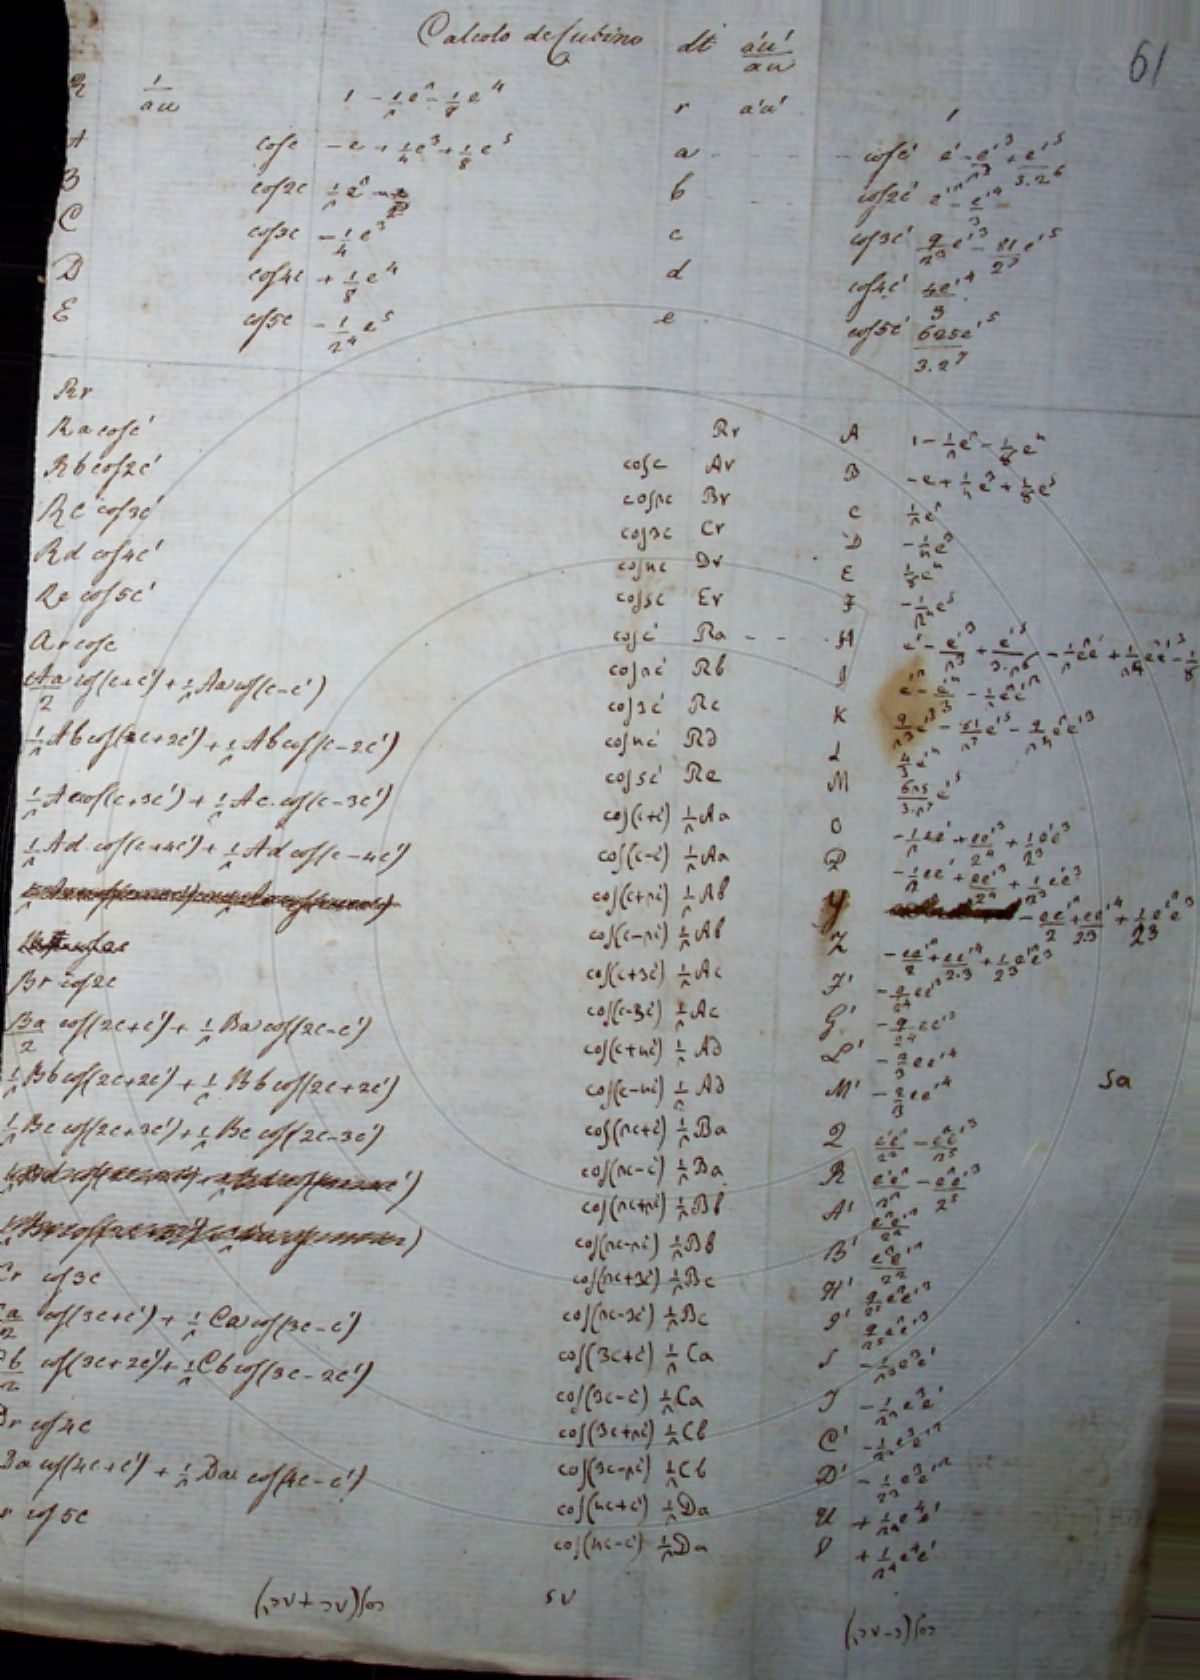 Calcolo de Cubino dt a'u'/au
61
R 1/au 1 - 1/2 e^2 - 1/8 e^4 r a'u' 1
A cos c - e + 1/4 e^3 + 1/8 e^5 a cos c' e' - e'^3/2^3 + e'^5/3.2^6
B cos 2c 1/2 e^2 b cos 2c' e'^2 - e'^4/3
C cos 3c - 1/4 e^3 c cos 3c' 9/2^3 e'^3 - 81/2^7 e'^5
D cos 4c + 1/8 e^4 d cos 4c' 4e'^4/3
E cos 5c - 1/2^4 e^5 e cos 5c' 625e'^5/3.2^7
Rr
Ra cos c'
Rb cos 2c'
Rc cos 3c'
Rd cos 4c'
Re cos 5c'
Ar cos c
Aa/2 cos(c+c') + 1/2 Aa cos(c-c')
1/2 Ab cos(c+2c') + 1/2 Ab cos(c-2c')
1/2 Ac cos(c+3c') + 1/2 Ac cos(c-3c')
1/2 Ad cos(c+4c') + 1/2 Ad cos(c-4c')
Br cos 2c
Ba/2 cos(2c+c') + 1/2 Ba cos(2c-c')
1/2 Bb cos(2c+2c') + 1/2 Bb cos(2c+2c')
1/2 Bc cos(2c+3c') + 1/2 Bc cos(2c-3c')
Cr cos 3c
Ca/2 cos(3c+c') + 1/2 Ca cos(3c-c')
Cb/2 cos(3c+2c') + 1/2 Cb cos(3c-2c')
Dr cos 4c
Da cos(4c+c') + 1/2 Da cos(4c-c')
r cos 5c
Rr A 1 - 1/2 e^2 - 1/8 e^4
cos c Ar B - e + 1/4 e^3 + 1/8 e^5
cos 2c Br C 1/2 e^2
cos 3c Cr D - 1/4 e^3
cos 4c Dr E 1/8 e^4
cos 5c Er F - 1/2^4 e^5
cos c' Ra H e' - e'^3/2^3 + e'^5/3.2^6 - 1/2 e^2 e' + 1/2^4 e^2 e'^3 - 1/8
cos 2c' Rb I e'^2 - e'^4/3 - 1/2 e^2 e'^2
cos 3c' Rc K 9/2^3 e'^3 - 81/2^7 e'^5 - 9/2^4 e^2 e'^3
cos 4c' Rd L 4/3 e'^4
cos 5c' Re M 625/3.2^7 e'^5
cos(c+c') 1/2 Aa O - 1/2 ee' + ee'^3/2^4 + 1/2^3 e^3 e'
cos(c-c') 1/2 Aa P - 1/2 ee' + ee'^3/2^4 + 1/2^3 e^3 e'
cos(c+2c') 1/2 Ab Y - ee'^2/2 + ee'^4/2.3 + 1/2^3 e'^2 e^3
cos(c-2c') 1/2 Ab Z - ee'^2/2 + ee'^4/2.3 + 1/2^3 e'^2 e^3
cos(c+3c') 1/2 Ac F' - 9/2^4 ee'^3
cos(c-3c') 1/2 Ac G' - 9/2^4 ee'^3
cos(c+4c') 1/2 Ad L' - 2/3 ee'^4
cos(c-4c') 1/2 Ad M' - 2/3 ee'^4
5a
cos(2c+c') 1/2 Ba Q e'e^2/2^2 - e^2e'^3/2^5
cos(2c-c') 1/2 Ba R e'e^2/2^2 - e^2e'^3/2^5
cos(2c+2c') 1/2 Bb A' e^2e'^2/2^2
cos(2c-2c') 1/2 Bb B' e^2e'^2/2^2
cos(2c+3c') 1/2 Bc H' 9/2^5 e^2e'^3
cos(2c-3c') 1/2 Bc I' 9/2^5 e^2e'^3
cos(3c+c') 1/2 Ca S - 1/2^3 e^3e'
cos(3c-c') 1/2 Ca T - 1/2^3 e^3e'
cos(3c+2c') 1/2 Cb C' - 1/2^3 e^3e'^2
cos(3c-2c') 1/2 Cb D' - 1/2^3 e^3e'^2
cos(4c+c') 1/2 Da U + 1/2^4 e^4e'
cos(4c-c') 1/2 Da V + 1/2^4 e^4e'
cos(2c+2c')
cos(c-2c')